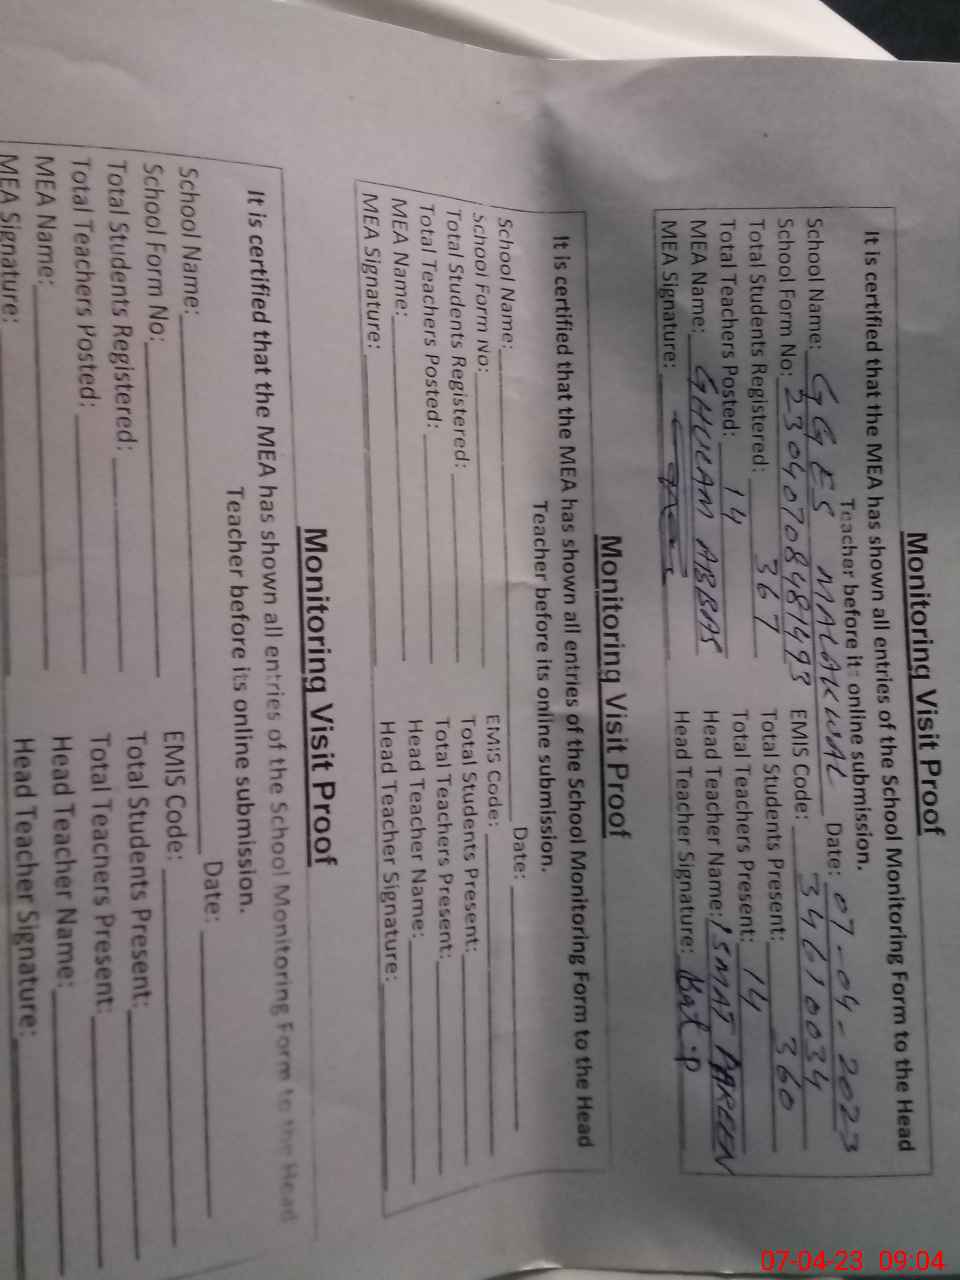 Monitoring Visit Proof
It is certified that the MEA has shown all entries of the School Monitoring Form to the Head
Teacher before its online submission.
School Name: GGES MALAKWAL Date: 07-04-2023
School Form No: 23040708481493 EMIS Code: 34610034
Total Students Registered: 367 Total Students Present: 360
Total Teachers Posted: 14 Total Teachers Present: 14
MEA Name: GHULAM ABBAS Head Teacher Name: ISMAT PARVEEN
MEA Signature: Head Teacher Signature:
Monitoring Visit Proof
It is certified that the MEA has shown all entries of the School Monitoring Form to the Head
Teacher before its online submission.
School Name: Date:
School Form No: EMIS Code:
Total Students Registered: Total Students Present:
Total Teachers Posted: Total Teachers Present:
MEA Name: Head Teacher Name:
MEA Signature: Head Teacher Signature:
Monitoring Visit Proof
It is certified that the MEA has shown all entries of the School Monitoring Form to the Head
Teacher before its online submission.
School Name: Date:
School Form No: EMIS Code:
Total Students Registered: Total Students Present:
Total Teachers Posted: Total Teachers Present:
MEA Name: Head Teacher Name:
MEA Signature: Head Teacher Signature:
07-04-23 09:04